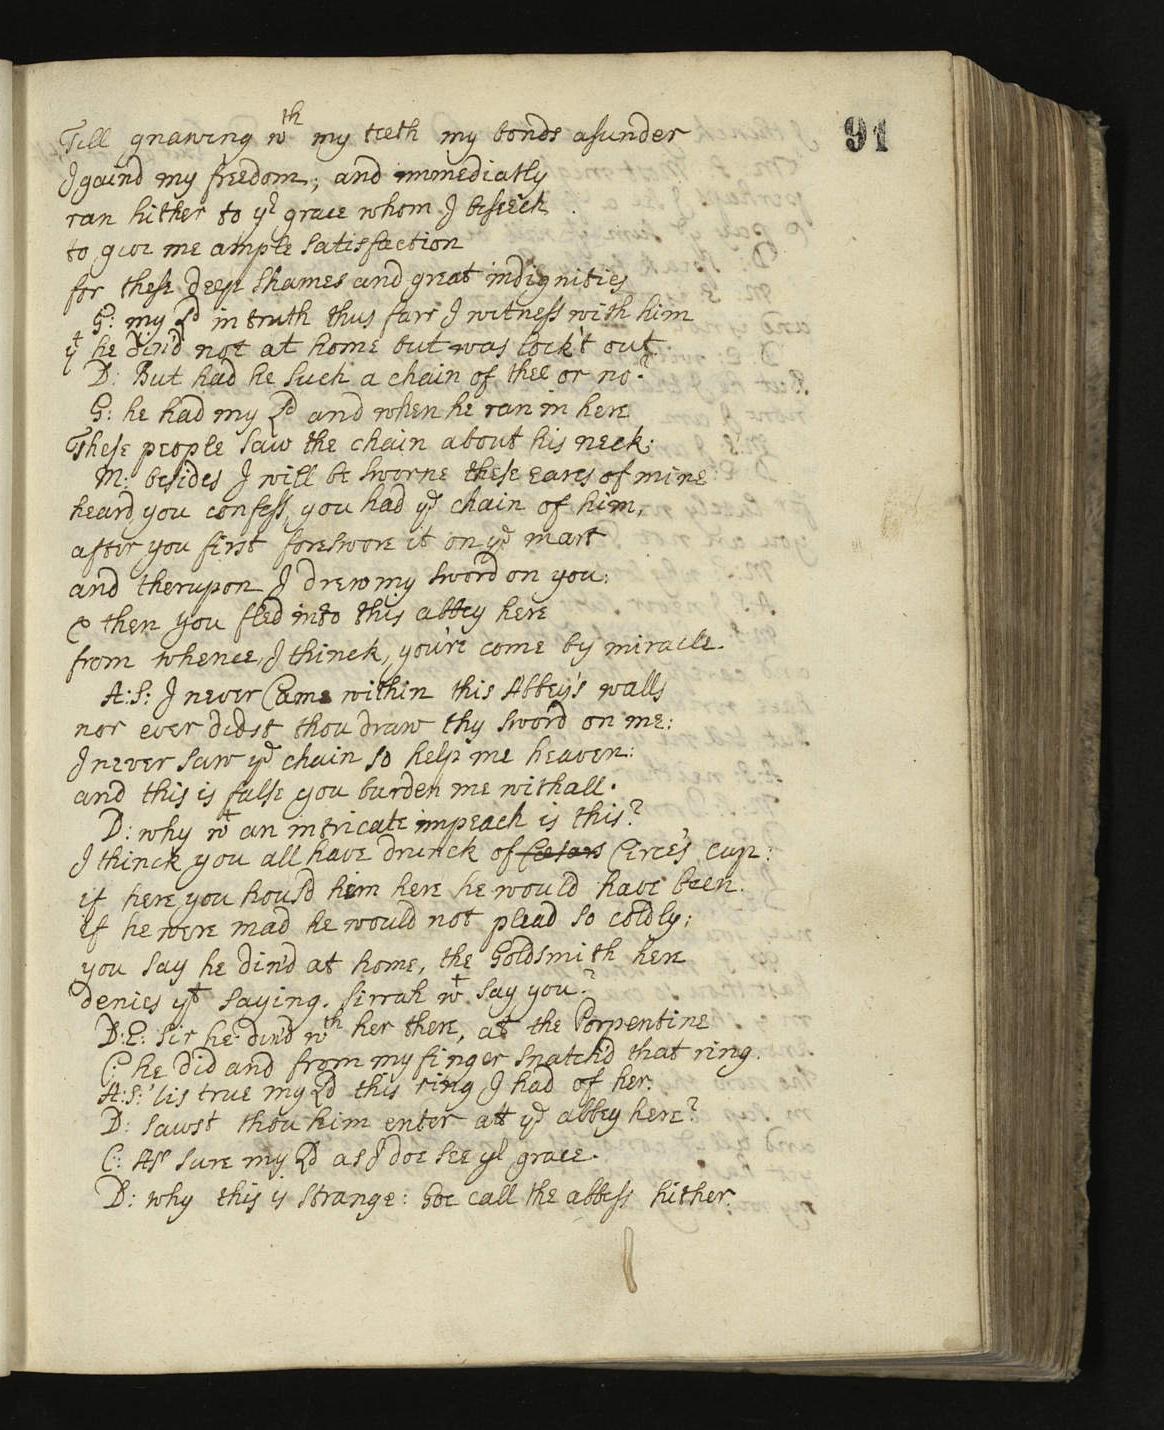 91
Till gnawing wth my teeth my bonds asunder
I gaind my freedom; and immediatly
ran hither to yr grace whom I beseech
to give me ample satisfaction
for these deep shames and great indignities
G: my Ld in truth thus farr I witness with him
yt he din'd not at home but was lock't out.
D: But had he such a chain of thee or no?
G: he had my Ld and when he ran in here
These people saw the chain about his neck:
M: besides I will be sworne these eares of mine
heard you confess, you had ye chain of him,
after you first foreswore it on ye mart
and therupon I drew my sword on you:
& then you fled into this abbey here
from whence, I thinck, you're come by miracle.
A:S: I never Came within this Abbey's walls
nor ever didst thou draw thy sword on me:
I never saw ye chain so help me heaven:
and this is false you burden me withall.
D: why wt an intricate impeach is this?
I thinck you all have drunck of Cesars Circe's cup:
if here you hous'd him here he would have been.
if he were mad he would not plead so coldly:
you say he din'd at home, the Goldsmith here
denies yt saying. sirrah wt say you?
D:E: Sir he din'd wth her there, at the Porpentine
C: he did and from my finger snatch'd that ring.
A:S: 'tis true my Ld this ring I had of her:
D: sawst thou him enter att ye abbey here?
C: As sure my Ld as I doe see yr grace.
D: why this is strange: Goe call the abbess hither.